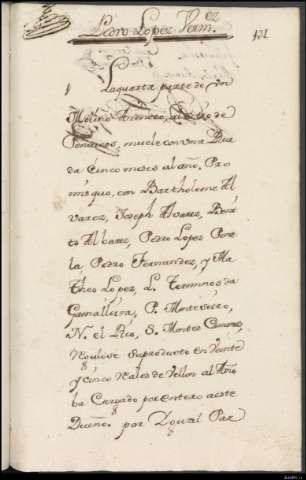 Pedro Lopez Verm.ez
121
1 La quarta parte de Un
Molino Arinero, al sitio de
Penueros, muele con una Rue
da Cinco meses al año. Pro
indiviso, con Bartholome Al
varez, Joseph Alvarez, Beni
to Albarez, Pedro Lopez Pere
la, Pedro Fernandez, y Ma
theo Lopez, L. Terminos da
Gamalleira, P. Monteveiro,
N. el Rio, S. Montes Comunes
Regulose Suproducto en Veinte
y cinco Reales de Vellon al Año
ba Cargado por entero aeste
Dueño. por Ygual Par